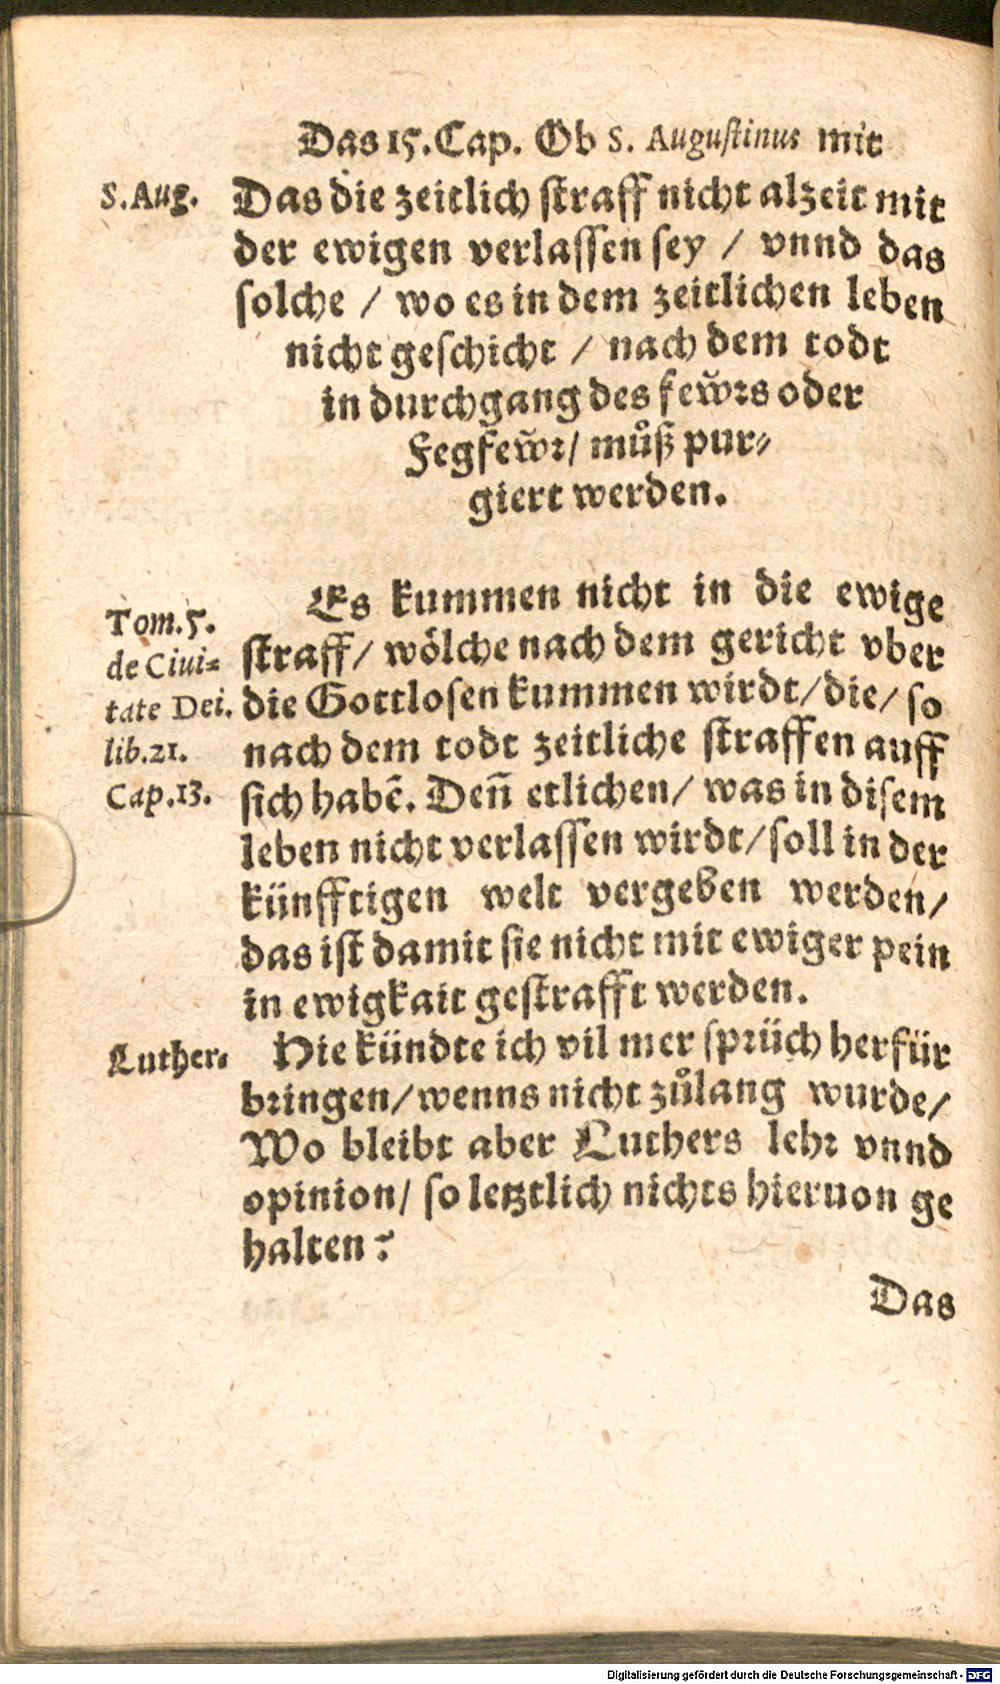 Das 15. Cap. Ob S. Augustinus mit
S. Aug.
Das die zeitlich straff nicht alzeit mit
der ewigen verlassen sey / vnnd das
solche / wo es in dem zeitlichen leben
nicht geschicht / nach dem todt
in durchgang des few̃rs oder
Fegfew̃r / můß pur⸗
giert werden.
Tom. 5.
de Ciui⸗
tate Dei.
lib. 21.
Cap. 13.
Es kummen nicht in die ewige
straff / wölche nach dem gericht vber
die Gottlosen kummen wirdt / die / so
nach dem todt zeitliche straffen auff
sich habẽ. Deñ etlichen / was in disem
leben nicht verlassen wirdt / soll in der
künfftigen welt vergeben werden /
das ist damit sie nicht mit ewiger pein
in ewigkait gestrafft werden.
Luther.
Hie kündte ich vil mer sprüch herfür
bringen / wenns nicht zůlang wurde /
Wo bleibt aber Luthers lehr vnnd
opinion / so letztlich nichts hieruon ge
halten?
Das
Digitalisierung gefördert durch die Deutsche Forschungsgemeinschaft - DFG